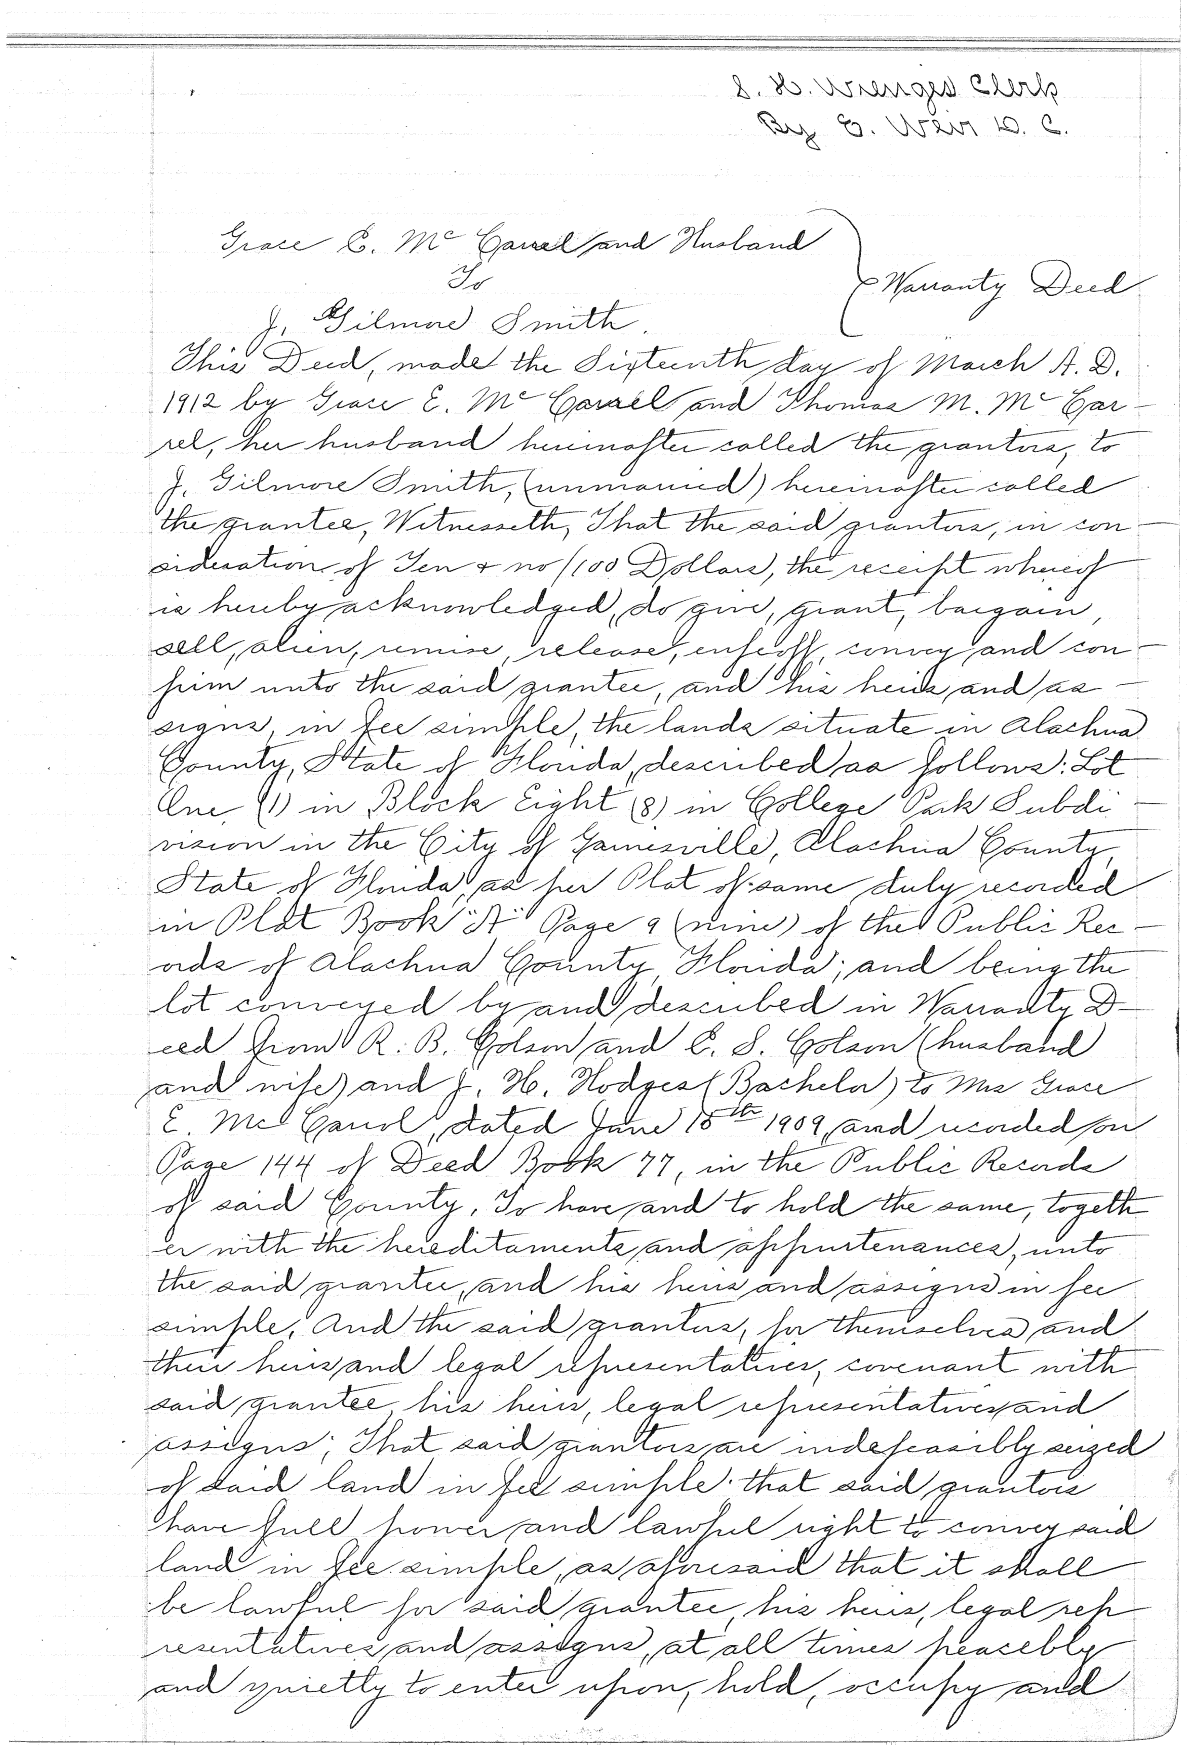 S. H. Wienges Clerk
By E. Weir D. C.
Grace E. Mc Carrel and Husband
To
Warranty Deed
J. Gilmore Smith.
This Deed, made the Sixteenth day of March A. D.
1912 by Grace E. Mc Carrel and Thomas M. Mc Car-
rel, her husband hereinafter called the grantors, to
J. Gilmore Smith, (unmarried) hereinafter called
the grantee, Witnesseth, That the said grantors, in con-
sideration of Ten & no/100 Dollars, the receipt whereof
is hereby acknowledged, do give, grant, bargain,
sell, alien, remise, release, enfeoff, convey and con-
firm unto the said grantee, and his heirs and as-
signs, in fee simple, the lands situate in Alachua
County, State of Florida, described as follows: Lot
One (1) in Block Eight (8) in College Park Subdi-
vision in the City of Gainesville, Alachua County,
State of Florida, as per Plat of same duly recorded
in Plat Book "A" Page 9 (nine) of the Public Rec-
ords of Alachua County, Florida; and being the
lot conveyed by and described in Warranty D-
eed from R. B. Colson and E. S. Colson (husband
and wife) and J. H. Hodges (Bachelor) to Mrs Grace
E. Mc Carrol, dated June 15th 1909, and recorded on
Page 144 of Deed Book 77, in the Public Records
of said County. To have and to hold the same, togeth
er with the hereditaments and appurtenances, unto
the said grantee, and his heirs and assigns in fee
simple. And the said grantors, for themselves and
their heirs and legal representatives, covenant with
said grantee, his heirs, legal representatives and
assigns; That said grantors are indefeasibly seized
of said land in fee simple; that said grantors
have full power and lawful right to convey said
land in fee simple, as aforesaid that it shall
be lawful for said grantee, his heirs, legal rep
resentatives and assigns, at all times peacebly
and quietly to enter upon, hold, occupy and